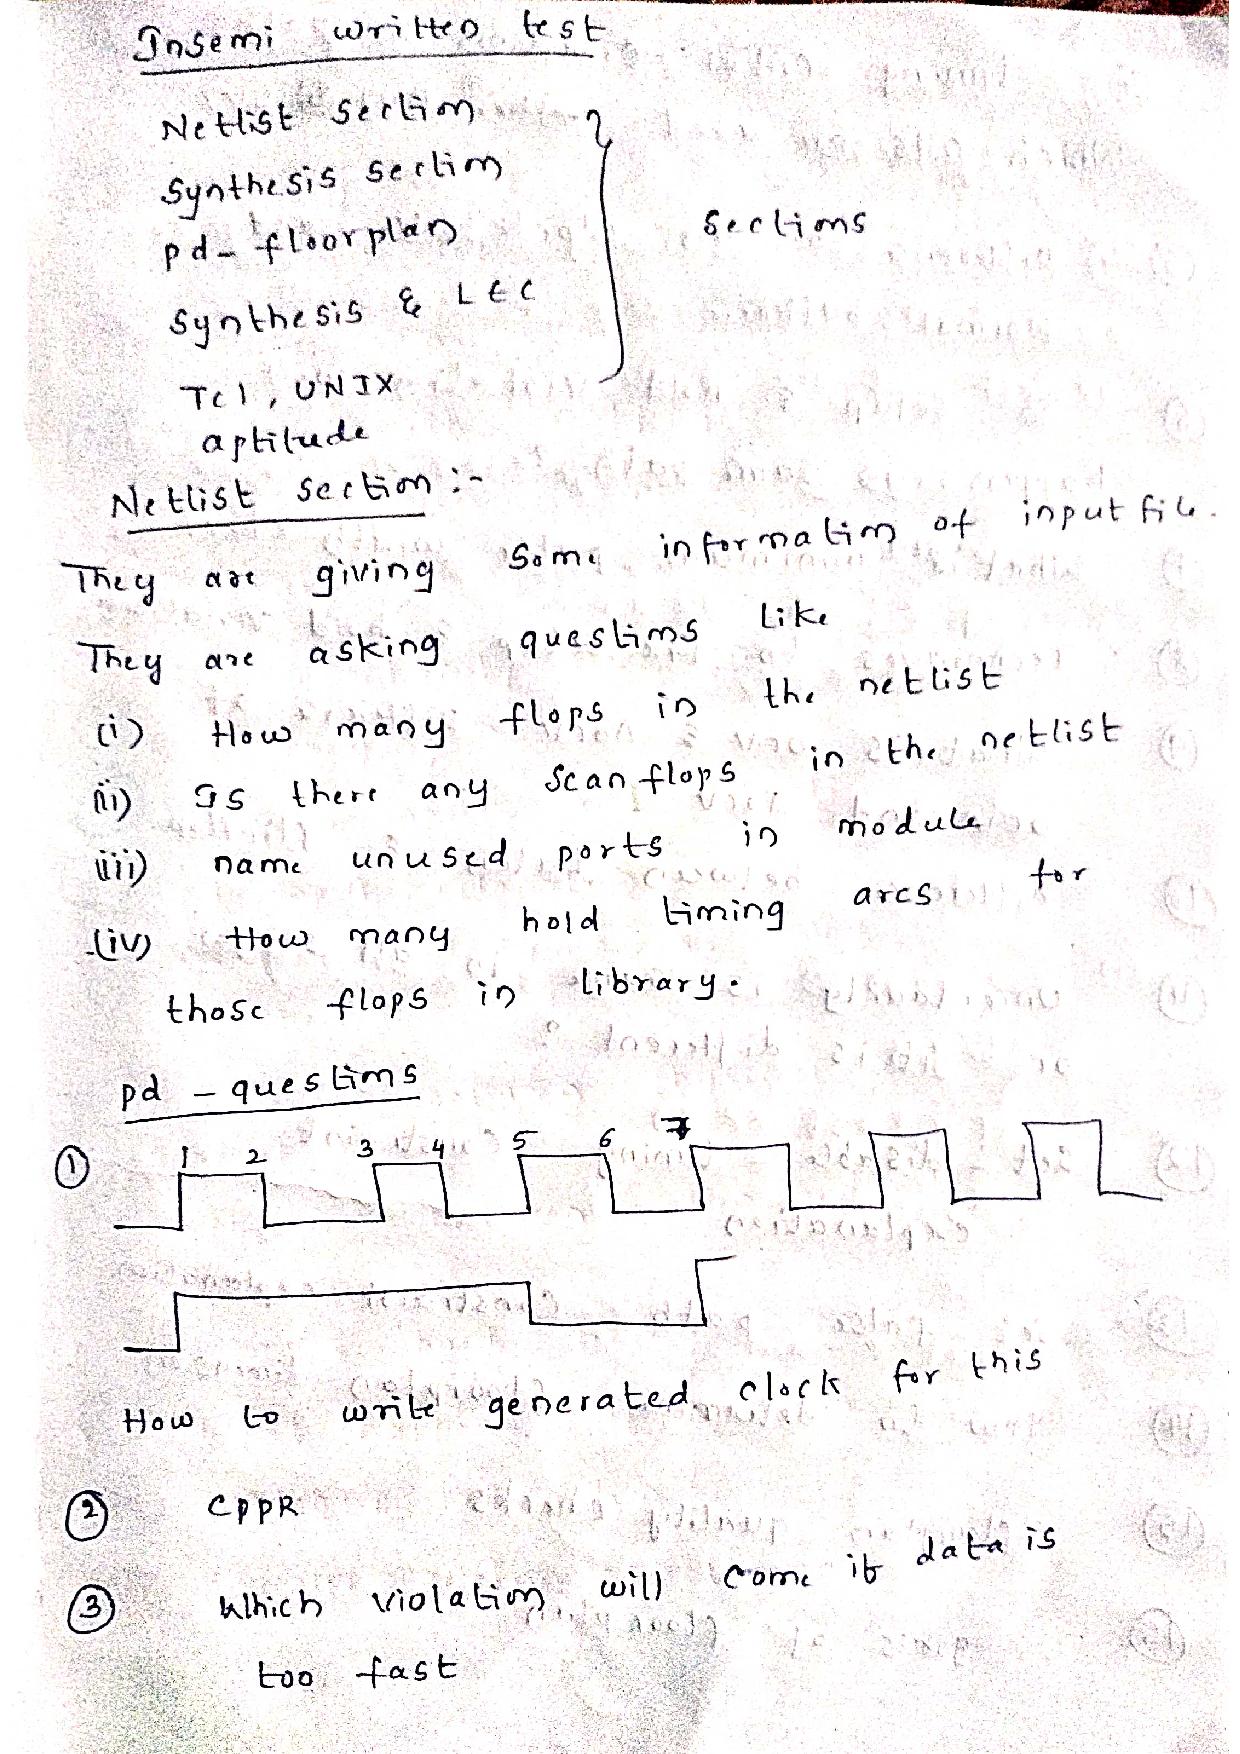 Insemi written test
Netlist section
Synthesis section
pd - floorplan
sections
Synthesis & LEC
Tcl, UNIX
aptitude
Netlist section :-
They are giving some information of input file.
They are asking questions like
(i) How many flops in the netlist
(ii) Is there any scan flops in the netlist
(iii) name unused ports in module
(iv) How many hold timing arcs for
those flops in library.
pd - questions
① 1 2 3 4 5 6 7
How to write generated clock for this
② CPPR
③ Which violation will come if data is
too fast